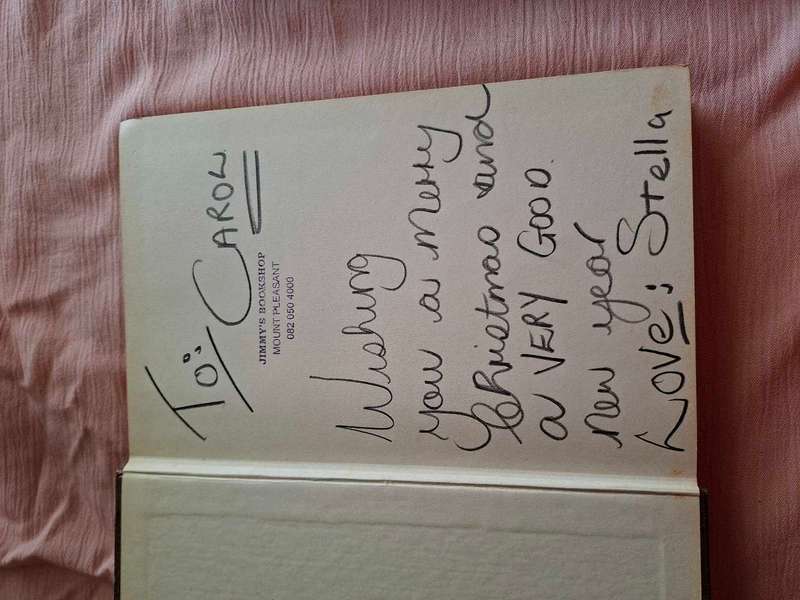 To: CAROL
JIMMY'S BOOKSHOP
MOUNT PLEASANT
082 050 4000
Wishing
you a merry
Christmas and
a VERY GOOD
new year
LOVE: Stella